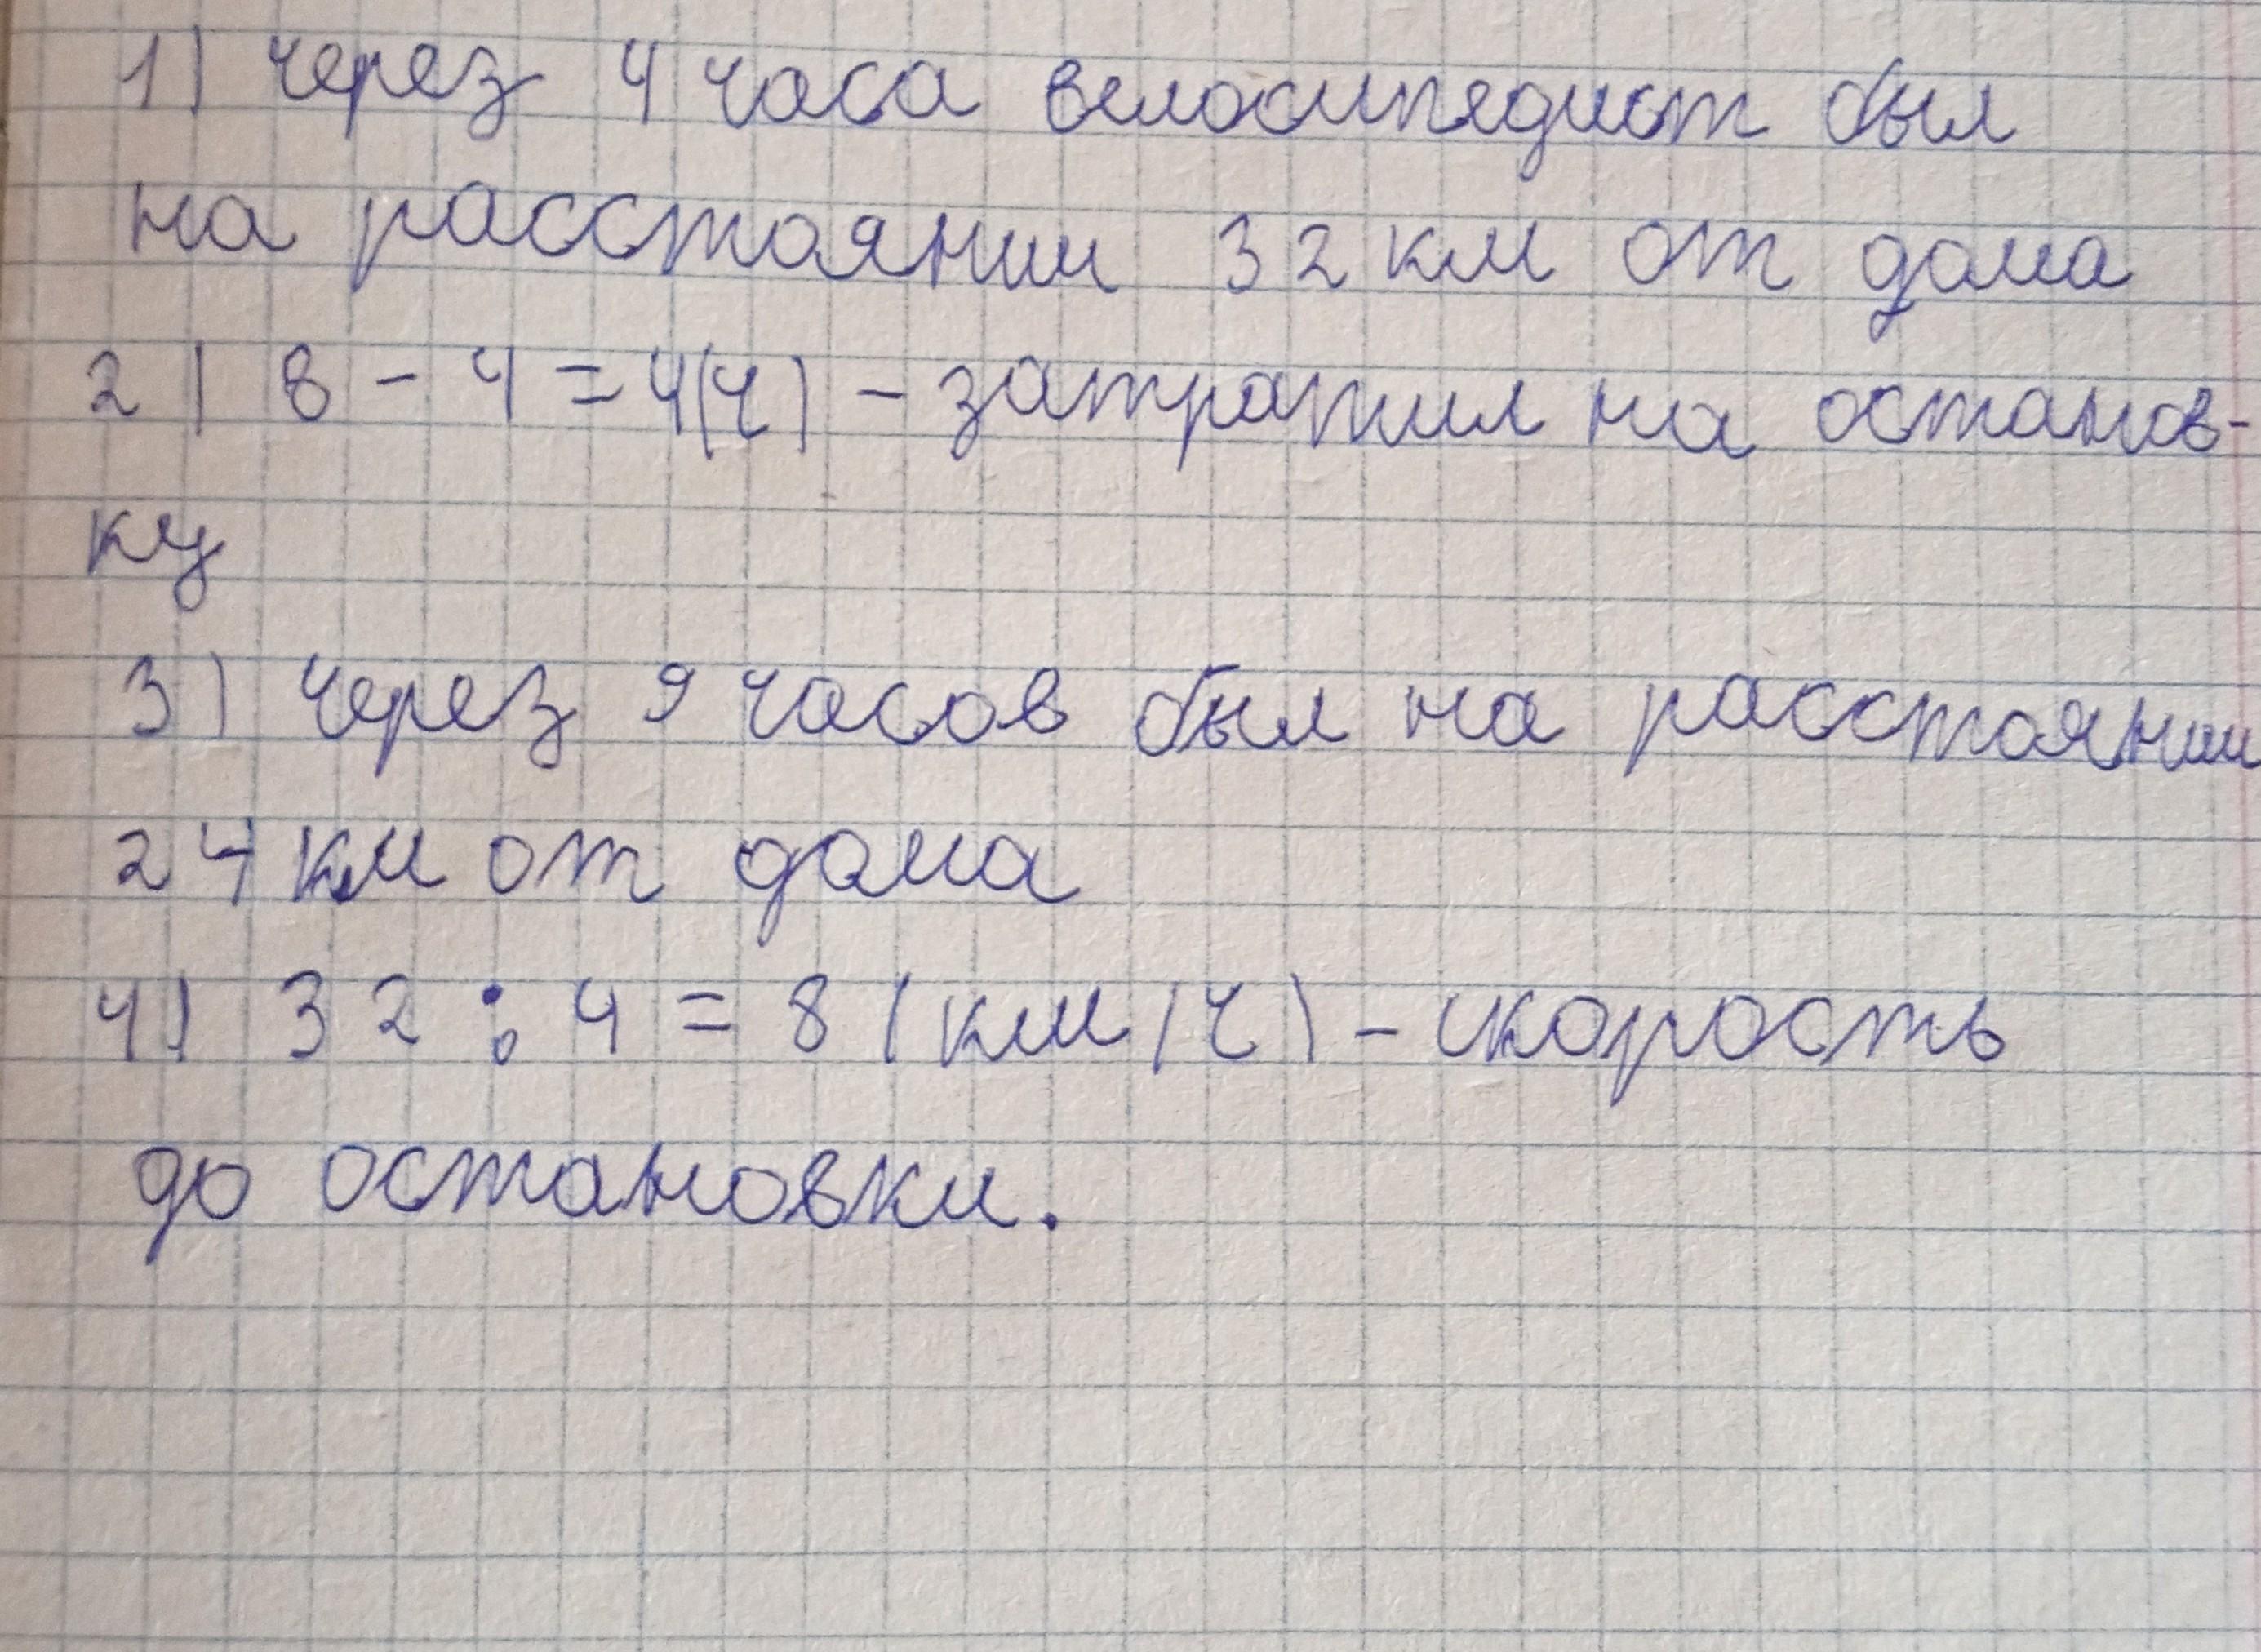 1) через 4 часа велосипедист был
на расстоянии 32 км от дома
2) 8 - 4 = 4(ч) - затратил на останов-
ку
3) через 9 часов был на расстоянии
24 км от дома
4) 32 : 4 = 8 (км/ч) - скорость
до остановки.